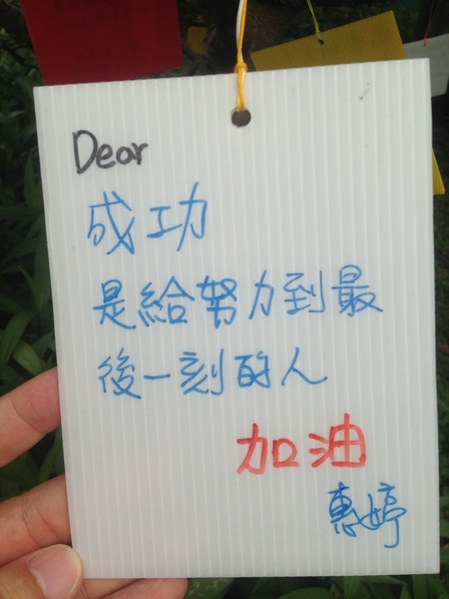 Dear
成功
是給努力到最
後一刻的人
加油
惠婷